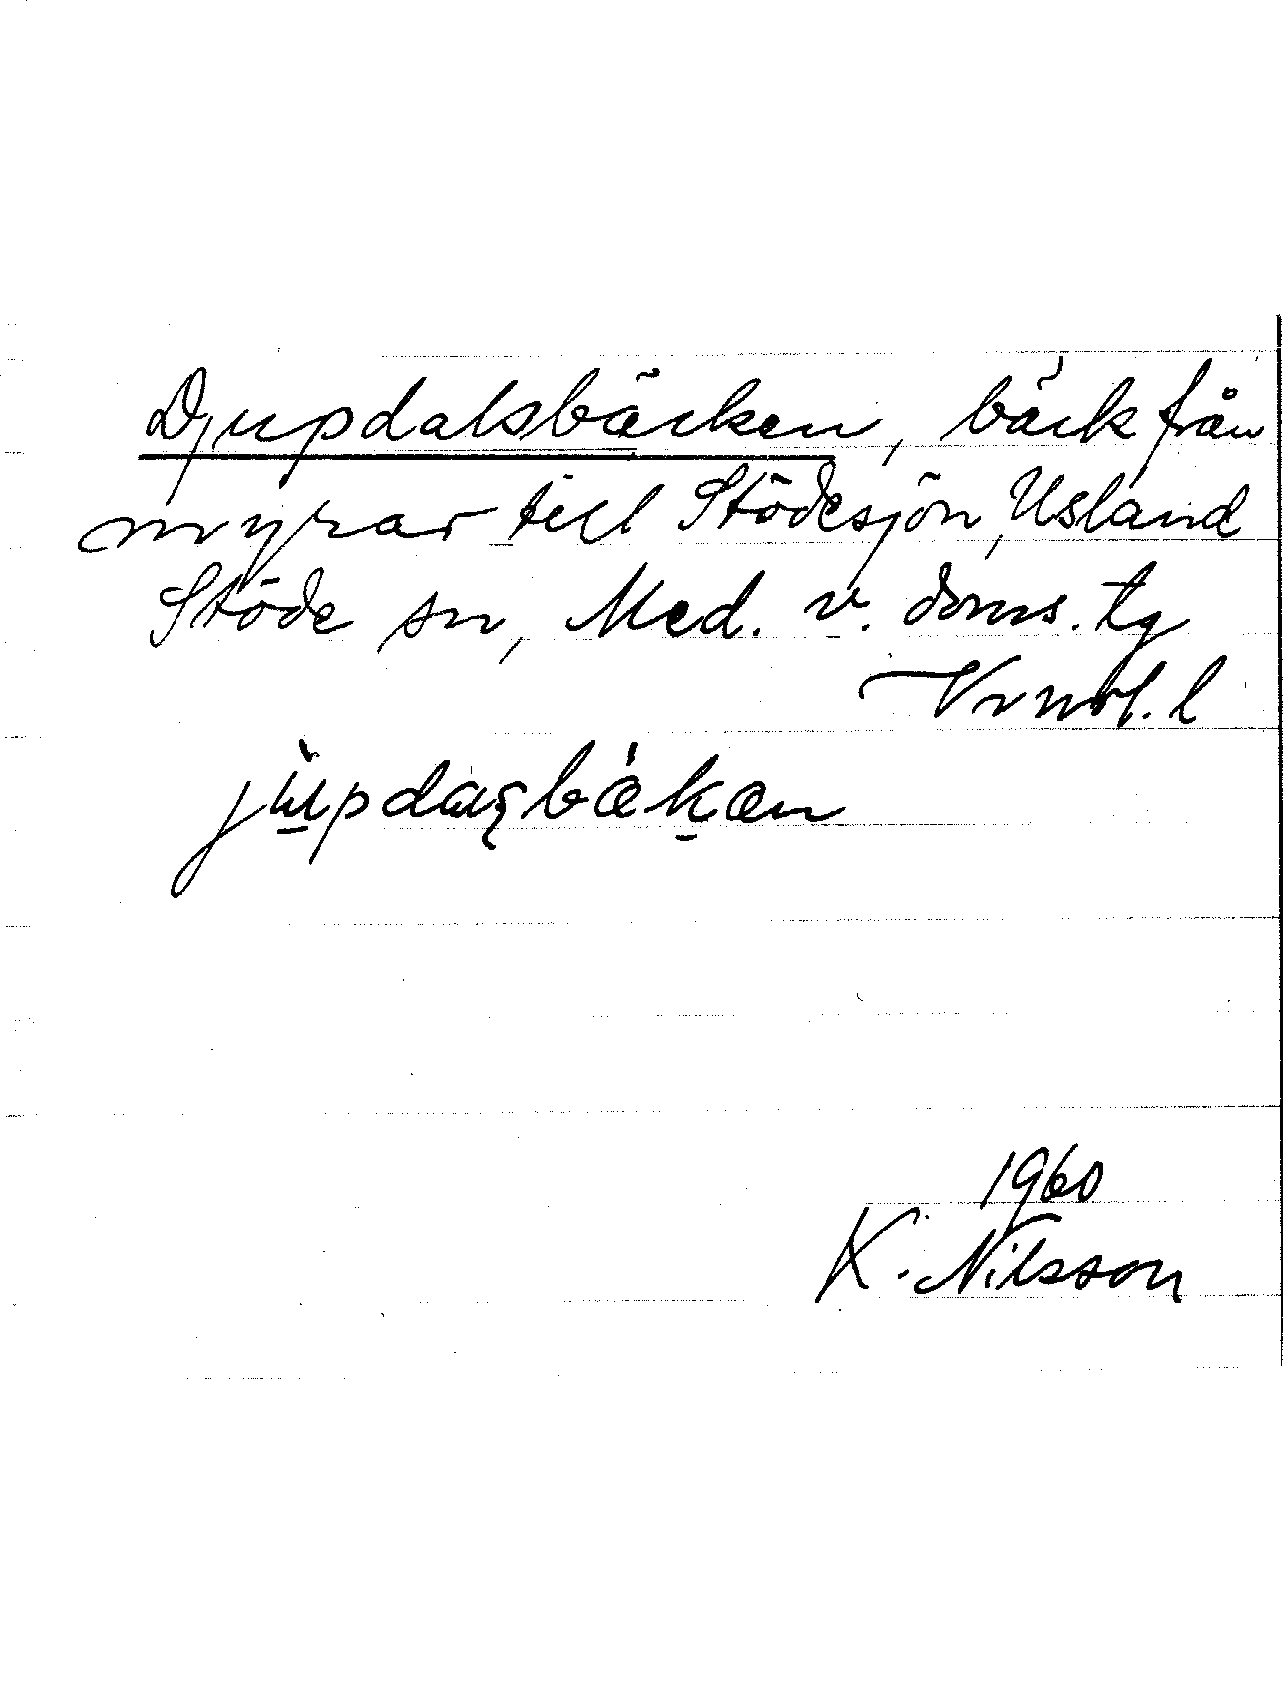 Djupdalsbäcken, bäck från
myrar till Stödesjön, Usland
Stöde sn, Med. v. doms. tg
Vrnrl. l
1960
K. Nilsson